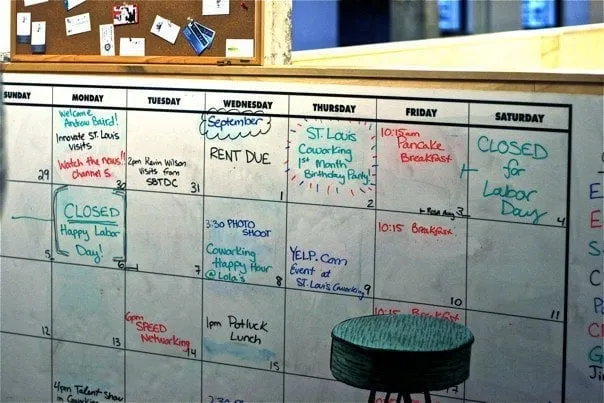 SUNDAY
MONDAY
TUESDAY
WEDNESDAY
THURSDAY
FRIDAY
SATURDAY
29
Welcome
Andrew Baird!
Innovate ST. Louis
Visits
Watch the news!!
Channel 5
30
2pm Kevin Wilson
Visits from
SBTDC
31
September
RENT DUE
1
ST. Louis
Coworking
1st Month
Birthday Party!
2
10:15am
Pancake
Breakfast
3
CLOSED
for
Labor
Day
4
5
CLOSED
Happy Labor
Day!
6
7
3:30 PHOTO
SHOOT
Coworking
Happy Hour
@ Lola's
8
YELP.Com
Event at
ST. Louis Coworking
9
10:15 Breakfast
10
11
12
13
6pm
SPEED
Networking
14
1pm Potluck
Lunch
15
10:15 Breakfast
17
4pm Talent Show
in Coworking